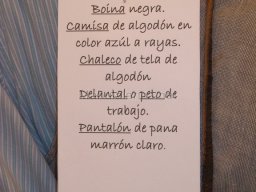 Boina negra.
Camisa de algodón en
color azúl a rayas.
Chaleco de tela de
algodón
Delantal o peto de
trabajo.
Pantalón de pana
marrón claro.